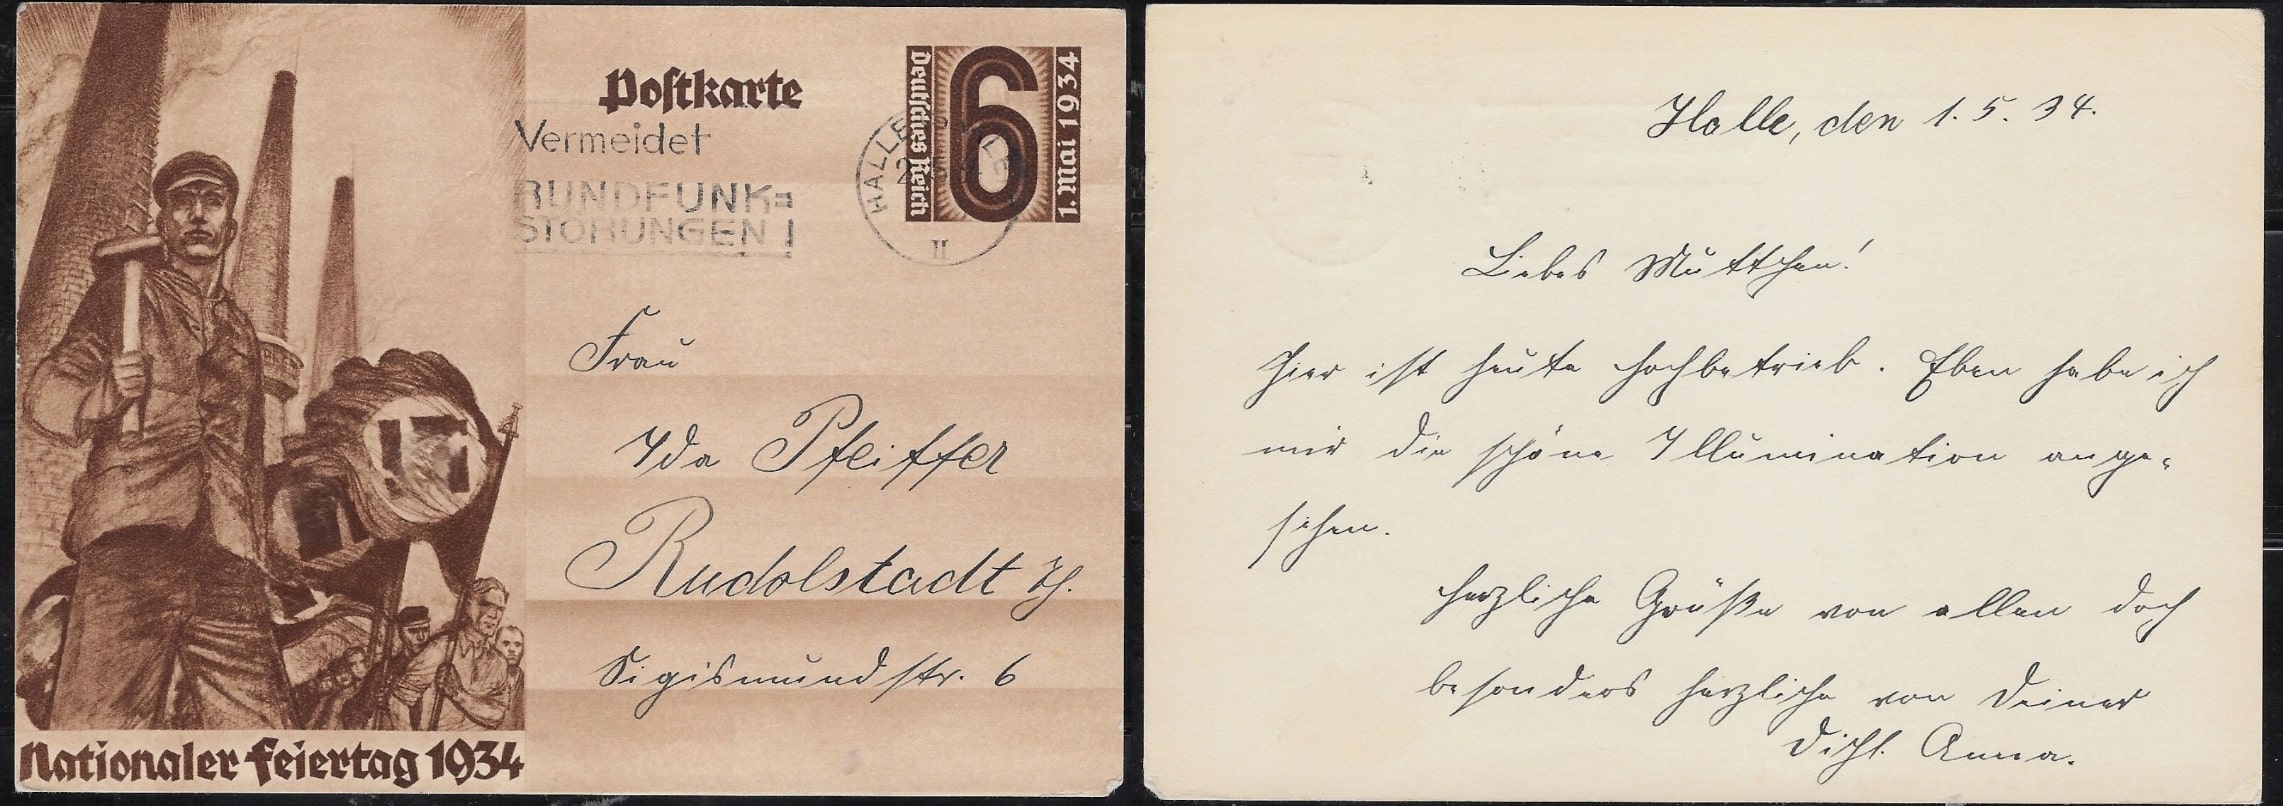 Postkarte
Deutsches Reich
6
1. Mai 1934
Vermeidet
RUNDFUNK=
STÖRUNGEN!
HALLE
II
Frau
Ida Pfeiffer
Rudolstadt Th.
Sigismundstr. 6
Nationaler Feiertag 1934
Halle, den 1. 5. 34.
Liebes Muttchen!
Hier ist heute Hochbetrieb. Eben habe ich
mir die schöne Illumination ange-
sehen.
Herzliche Grüße von allen doch
besonders herzliche von Deiner
Anna.